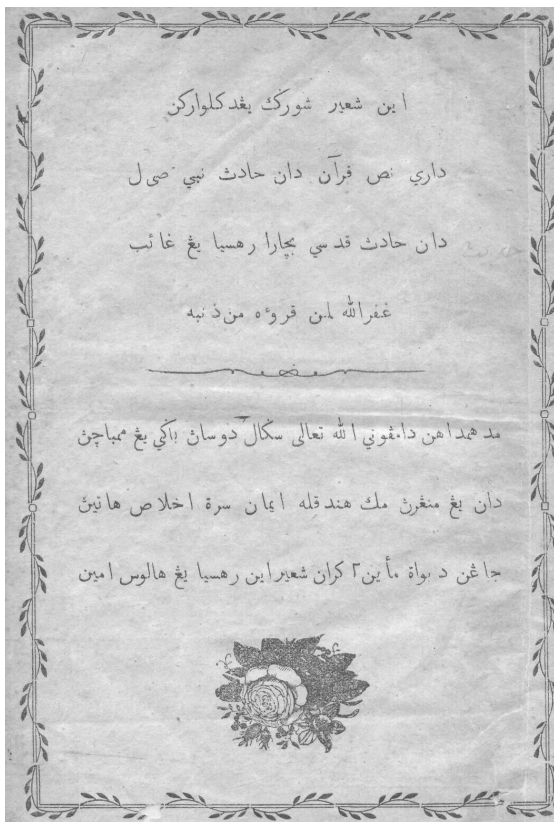 اين شعير شوركݢ يڠد كلواركن
داري نص قرآن دان حادث نبي صى ل
دان حادث قدسي بچارا رهسيا يڠ غائب
غفرالله لمن قروءه من ذنبه
مد همداهن دامڤوني الله تعالى سكال دوساڽ باكي يڠ ممباچڽ
دان يڠ منڠرڽ مك هندقله ايمان سرة اخلاص هاتيڽ
جاڠن د بواة مأين٢ كران شعير اين رهسيا يڠ هالوس امين